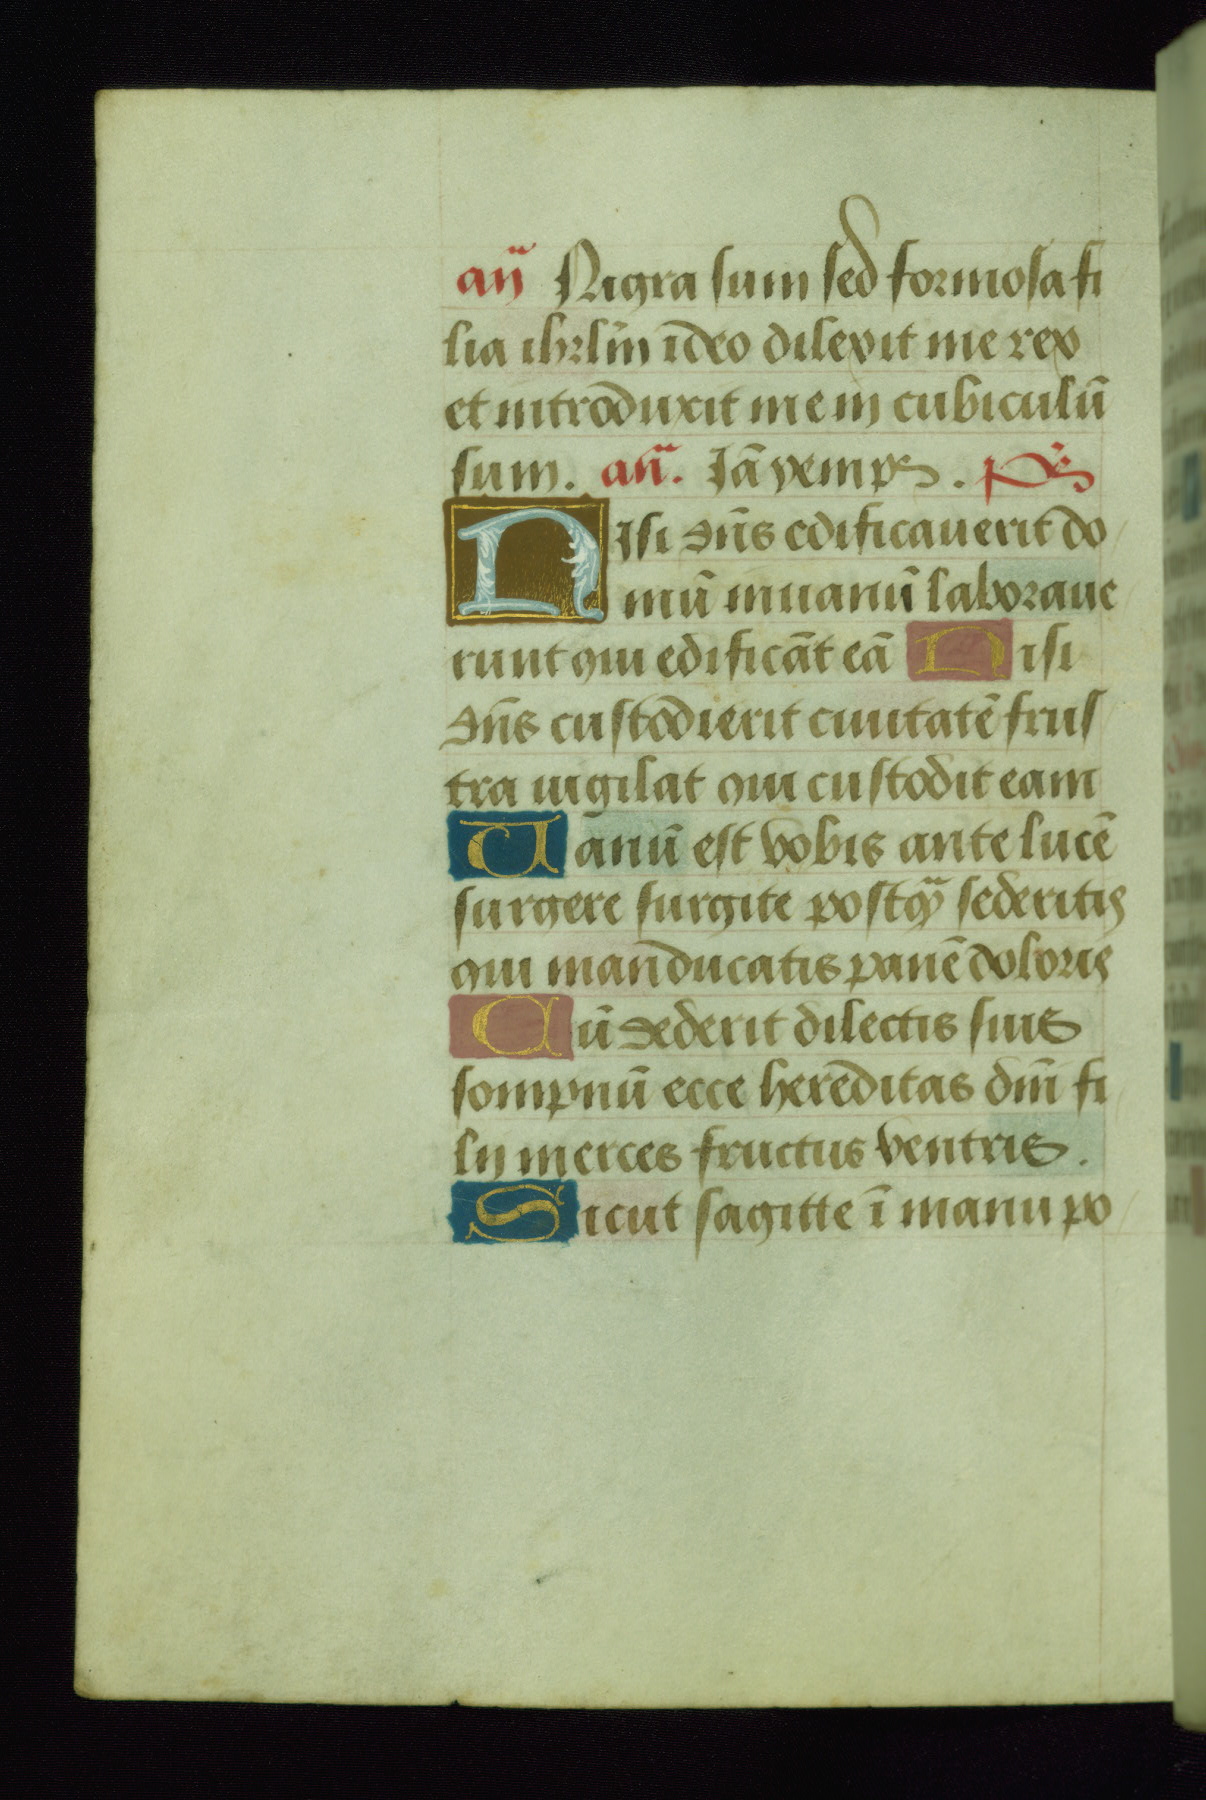 añ Nigra sum sed formosa fi
lia ihrlm̄ īdeo dilexit me rex
et introduxit me in cubiculū
suum. añ. Jā yemps. ps
Nisi dn̄s edificauerit do
mū inuanū laboraue
runt qui edificāt eā Nisi
dn̄s custodierit ciuitatē frus
tra uigilat qui custodit eam
Uanū est vobis ante lucē
surgere surgite postqȝ sederitis
qui manducatis panē doloris
Cū dederit dilectis suis
sompnū ecce hereditas dn̄i fi
lij merces fructus ventris.
Sicut sagitte ī manu po